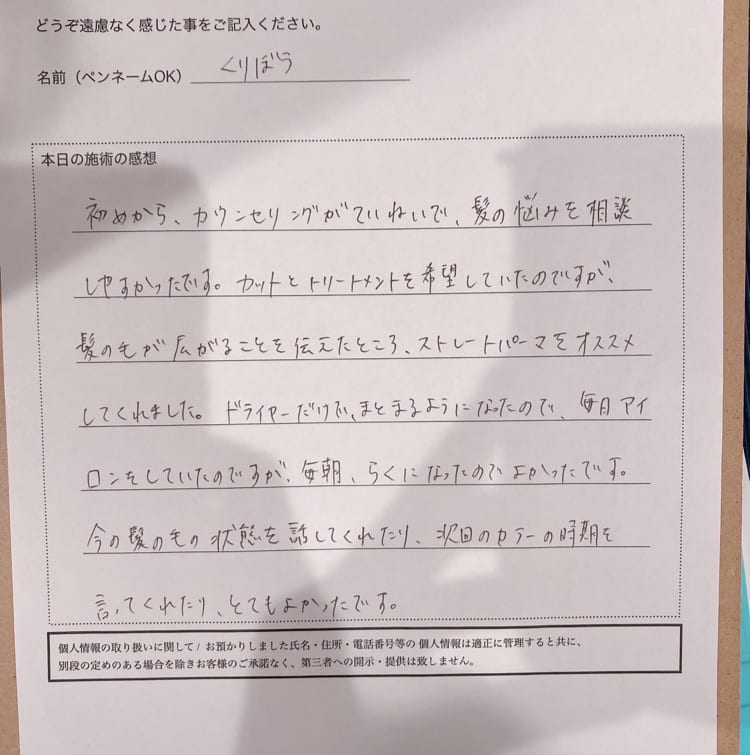 どうぞ遠慮なく感じた事をご記入ください。
名前（ペンネームOK） くりぼう
本日の施術の感想
初めから、カウンセリングがていねいで、髪の悩みを相談
しやすかったです。カットとトリートメントを希望していたのですが、
髪の毛が広がることを伝えたところ、ストレートパーマをオススメ
してくれました。ドライヤーだけで、まとまるようになったので、毎日アイ
ロンをしていたのですが、毎朝、らくになったのでよかったです。
今の髪の毛の状態を話してくれたり、次回のカラーの時期を
言ってくれたり、とてもよかったです。
個人情報の取り扱いに関して / お預かりしました氏名・住所・電話番号等の 個人情報は適正に管理すると共に、
別段の定めのある場合を除きお客様のご承諾なく、第三者への開示・提供は致しません。